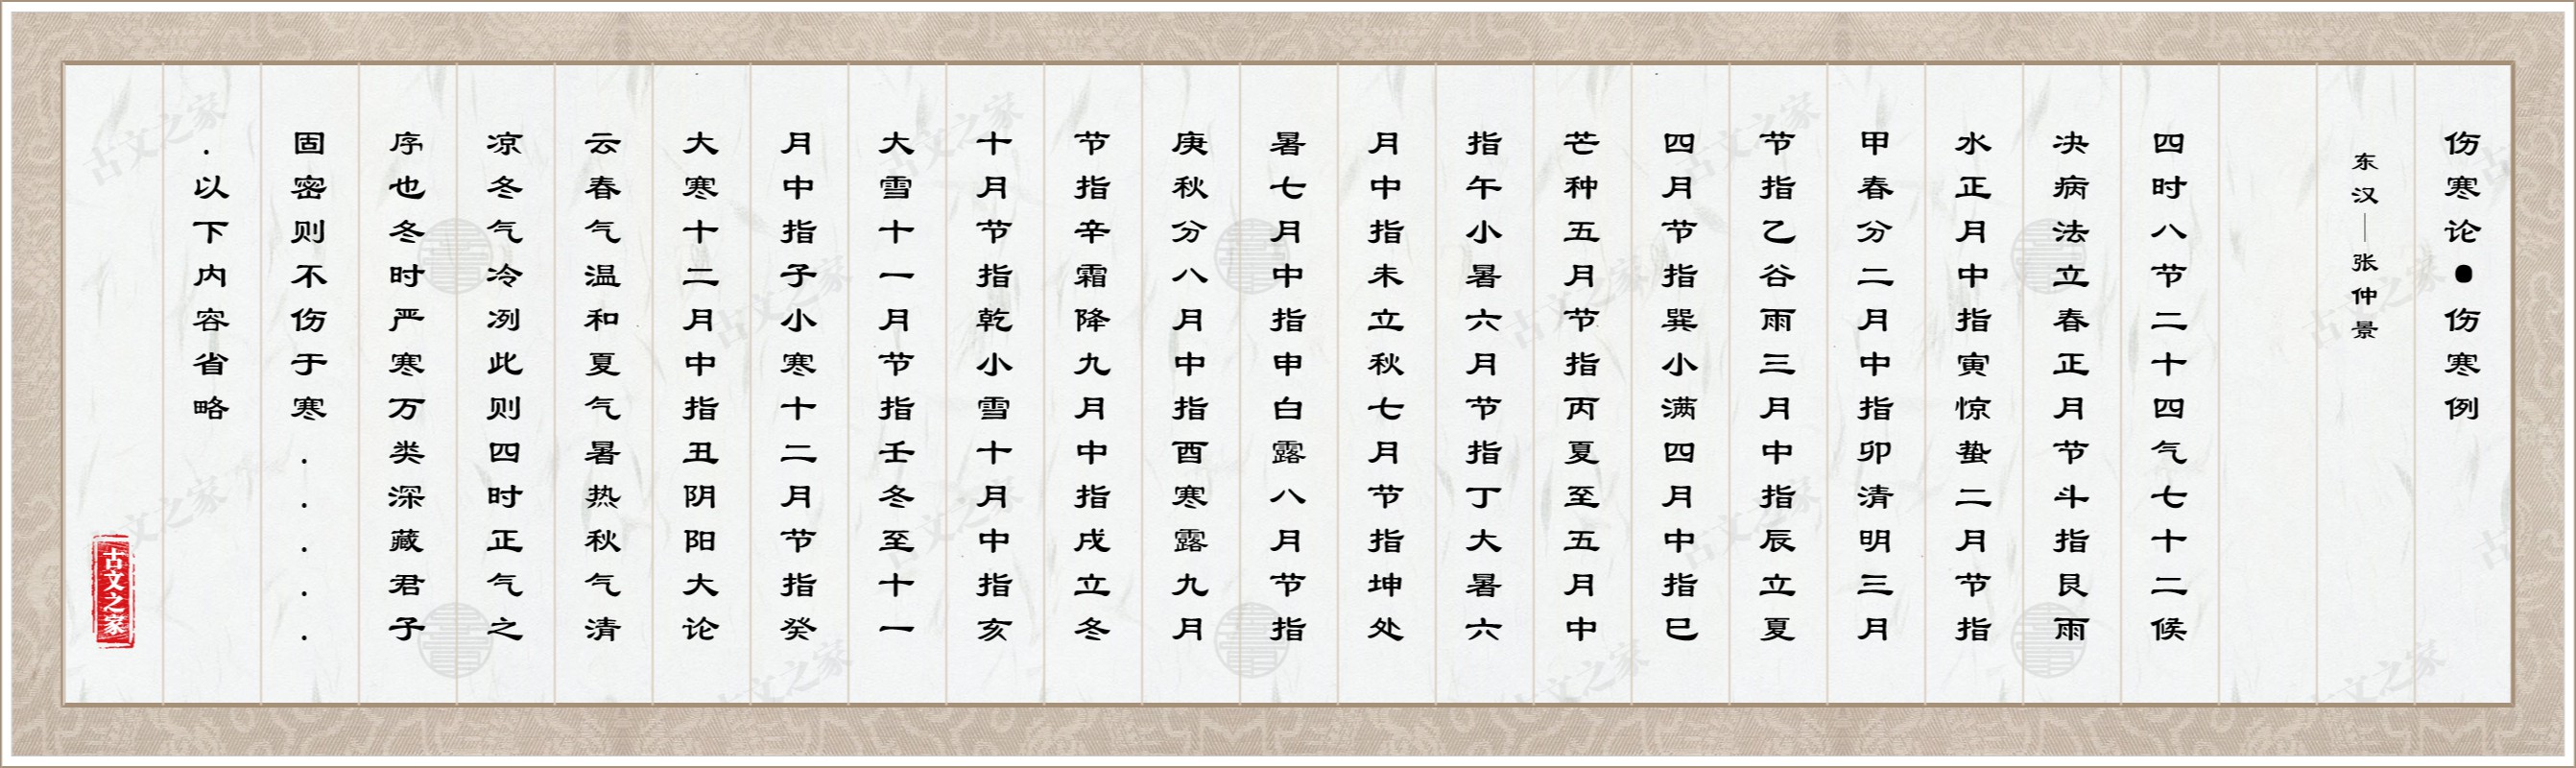 伤寒论●伤寒例
东汉—张仲景
四时八节二十四气七十二候
决病法立春正月节斗指艮雨
水正月中指寅惊蛰二月节指
甲春分二月中指卯清明三月
节指乙谷雨三月中指辰立夏
四月节指巽小满四月中指巳
芒种五月节指丙夏至五月中
指午小暑六月节指丁大暑六
月中指未立秋七月节指坤处
暑七月中指申白露八月节指
庚秋分八月中指酉寒露九月
节指辛霜降九月中指戌立冬
十月节指乾小雪十月中指亥
大雪十一月节指壬冬至十一
月中指子小寒十二月节指癸
大寒十二月中指丑阴阳大论
云春气温和夏气暑热秋气清
凉冬气冷冽此则四时正气之
序也冬时严寒万类深藏君子
固密则不伤于寒.....
.以下内容省略
古文之家